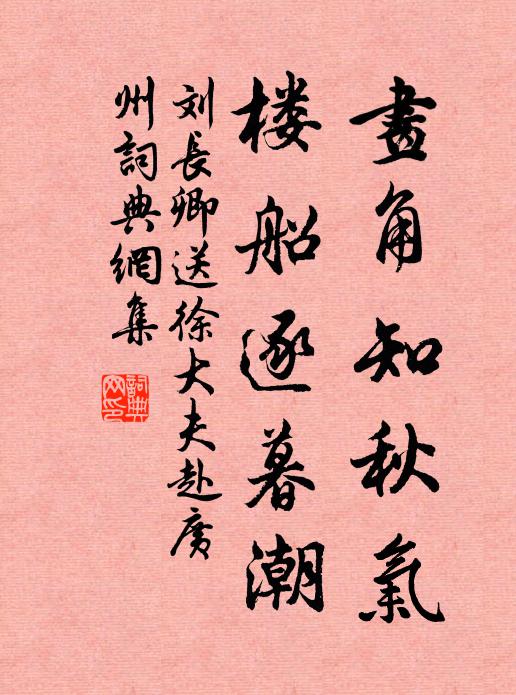 畫角知秋氣
楼船逐暮潮
刘長卿送徐大夫赴廣
州詞典網集
詞典网印